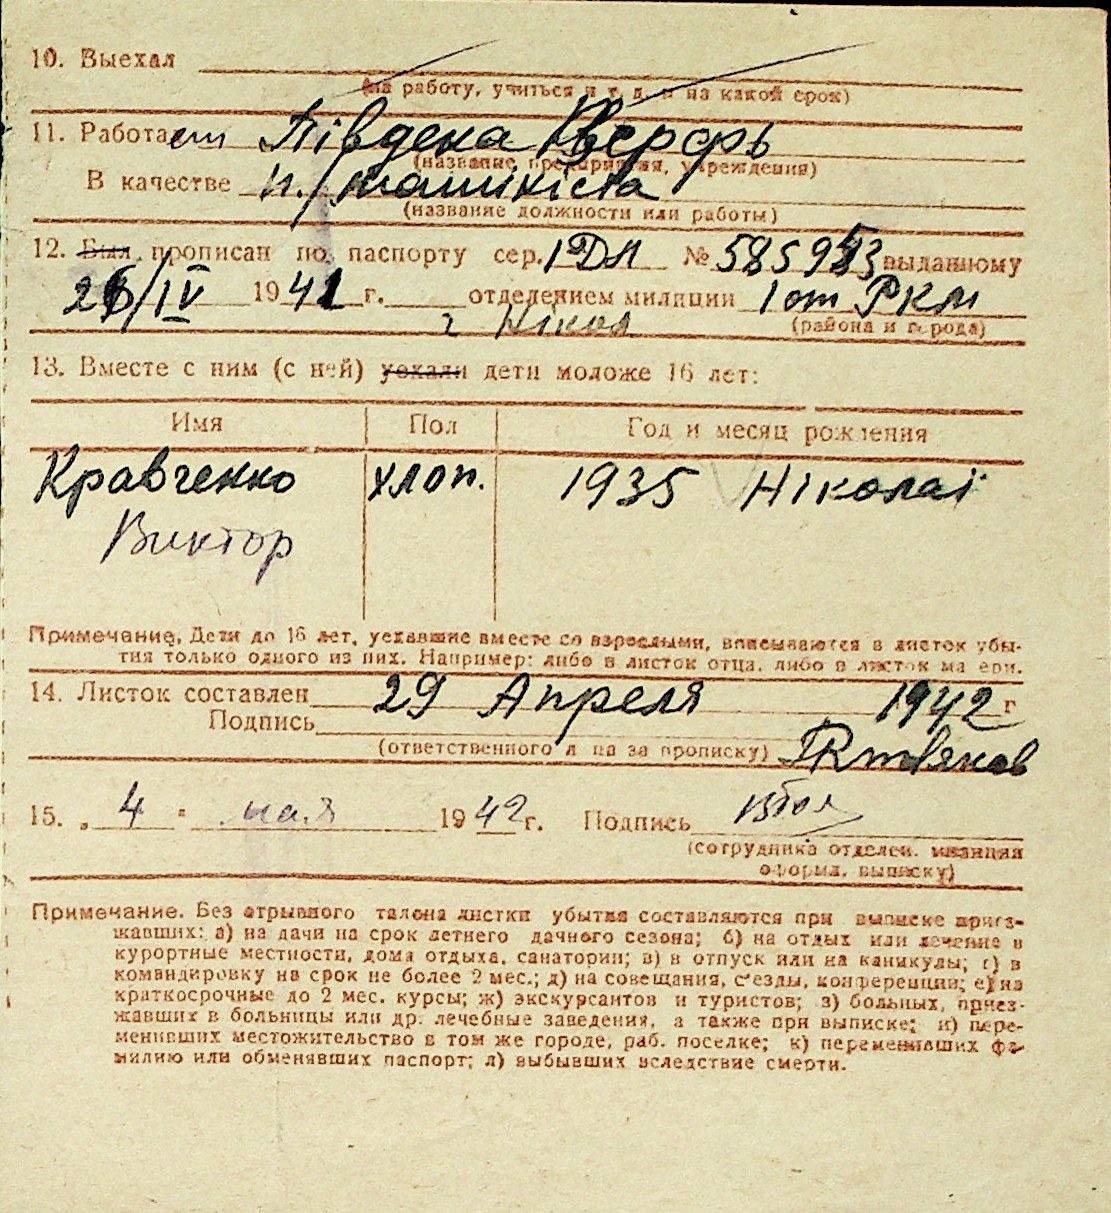 10. Выехал
(на работу, учиться и т. д. и на какой срок)
11. Работает Південа Верфь
(название предприятия, учреждения)
В качестве п./машиніста
(название должности или работы)
12. Был прописан по паспорту сер. 1 ДЛ № 585953 выданному
26/IV 1941 г. отделением милиции 1 от РКМ
г Нікол (района и города)
13. Вместе с ним (с ней) уехали дети моложе 16 лет:
Имя Пол Год и месяц рождения
Кравченко хлоп. 1935 Ніколаї
Виктор
Примечание. Дети до 16 лет, уехавшие вместе со взрослыми, вписываются в листок убы-
тия только одного из них. Например: либо в листок отца, либо в листок матери.
14. Листок составлен 29 Апреля 1942 г
Подпись
(ответственного лица за прописку)
15. „ 4 " мая 1942 г. Подпись
(сотрудника отделен. милиции
оформл. выписку)
Примечание. Без отрывного талона листки убытия составляются при выписке приез-
жавших: а) на дачи на срок летнего дачного сезона; б) на отдых или лечение в
курортные местности, дома отдыха, санатории; в) в отпуск или на каникулы; г) в
командировку на срок не более 2 мес.; д) на совещания, съезды, конференции; е) на
краткосрочные до 2 мес. курсы; ж) экскурсантов и туристов; з) больных, приез-
жавших в больницы или др. лечебные заведения, а также при выписке; и) пере-
менивших местожительство в том же городе, раб. поселке; к) переменивших фа-
милию или обменявших паспорт; л) выбывших вследствие смерти.